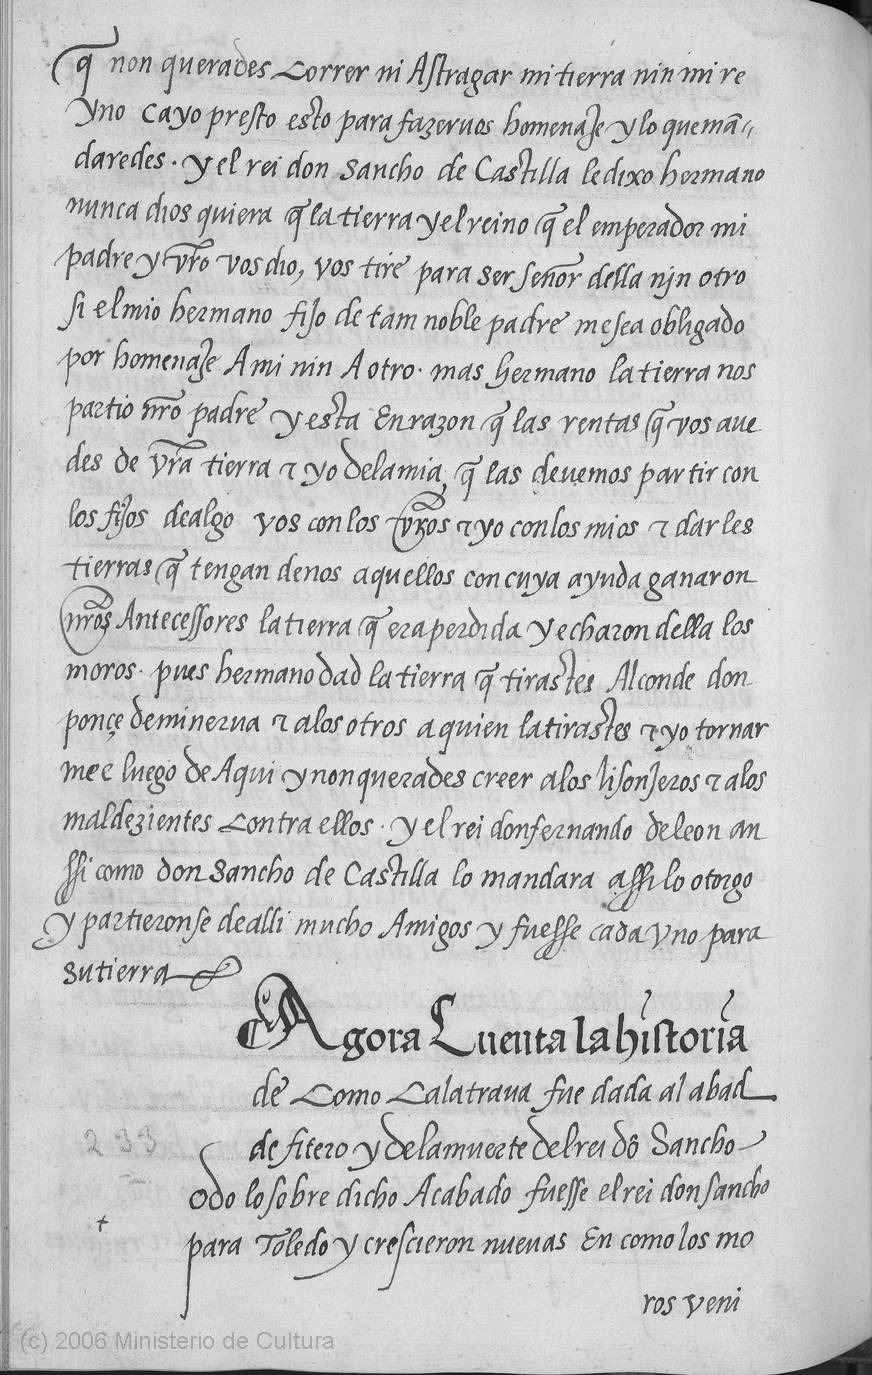 q̃ non querades Correr ni Astragar mi tierra nin mi re
yno ca yo presto esto para fazeruos homenaje y lo que mã=
daredes. y el rei don Sancho de Castilla le dixo hermano
nunca dios quiera q̃ la tierra y el reino q̃ el emperador mi
padre y vr̃o vos dio, vos tire para ser señor della njn otro
si el mio hermano fijo de tam noble padre me sea obligado
por homenaje A mi nin A otro. mas hermano la tierra nos
partio nr̃o padre y esta En razon q̃ las rentas q̃ vos aue
des de vr̃a tierra τ yo de la mia, q̃ las deuemos partir con
los fijos dealgo vos con los vr̃os τ yo con los mios τ dar les
tierras q̃ tengan de nos aquellos con cuya ayuda ganaron
nr̃os Antecessores la tierra q̃ era perdida y echaron della los
moros. pues hermano dad la tierra q̃ tirastes Al conde don
ponçe de minerua τ a los otros a quien la tirastes τ yo tornar
me e luego de Aqui y non querades creer a los lisonjeros τ a los
maldezientes Contra ellos. y el rei don fernando de leon an
ssi como don Sancho de Castilla lo mandara assi lo otorgo
y partieronse de alli mucho Amigos y fuesse cada vno para
su tierra
Agora Cuenta la historia
de Como Calatraua fue dada al abad
de fitero y de la muerte del rei dõ Sancho
odo lo sobre dicho Acabado fuesse el rei don sancho
para Toledo y crescieron nueuas En como los mo
ros veni
233
(c) 2006 Ministerio de Cultura